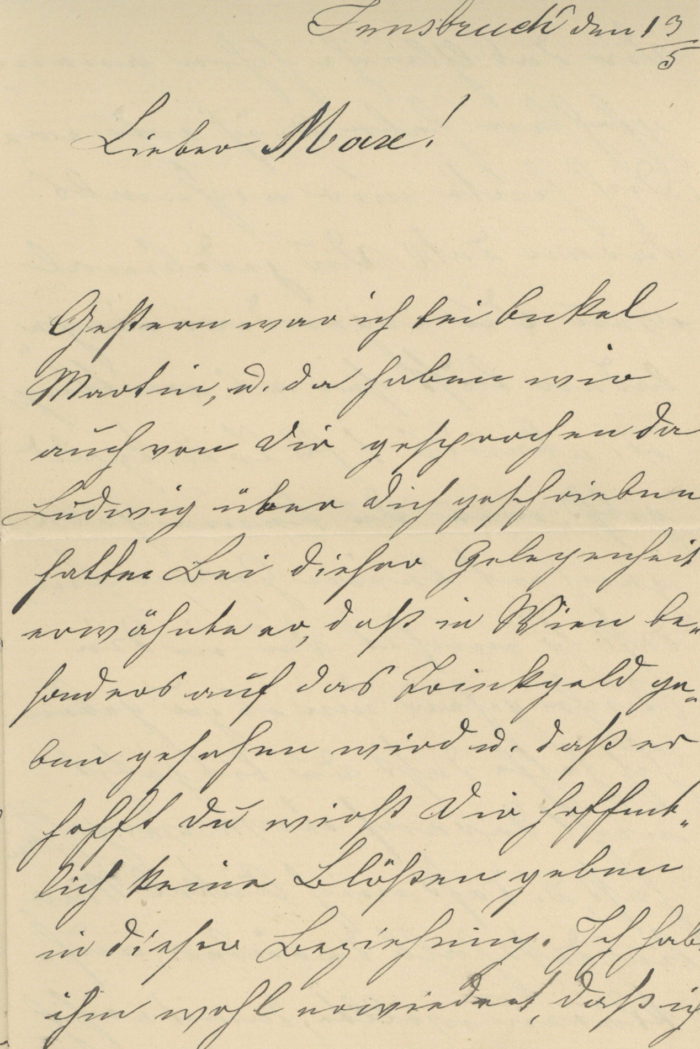 Innsbruck den 13/5
Lieber Max!
Gestern war ich bei Onkel
Martin, u. da haben wir
auch von Dir gesprochen da
Ludwig über Dich geschrieben
hatte Bei dieser Gelegenheit
erwähnte er, daß in Wien be-
sonders auf das Trinkgeld ge-
ben gesehen wird u. daß er
hofft du wirst Dir hoffent-
lich keine Blößen geben
in dieser Beziehung. Ich hab
ihm wohl erwiedert, daß ich